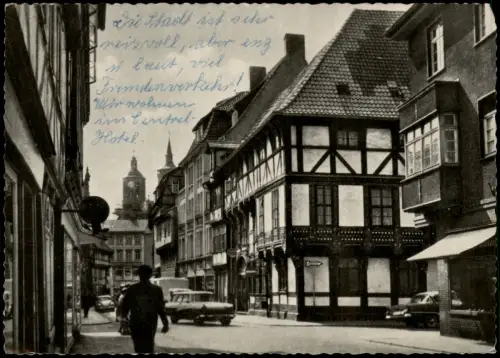 Die Stadt ist sehr
reizvoll, aber eng
u. laut, viel
Fremdenverkehr!
Wir wohnen
im Central-
Hotel.